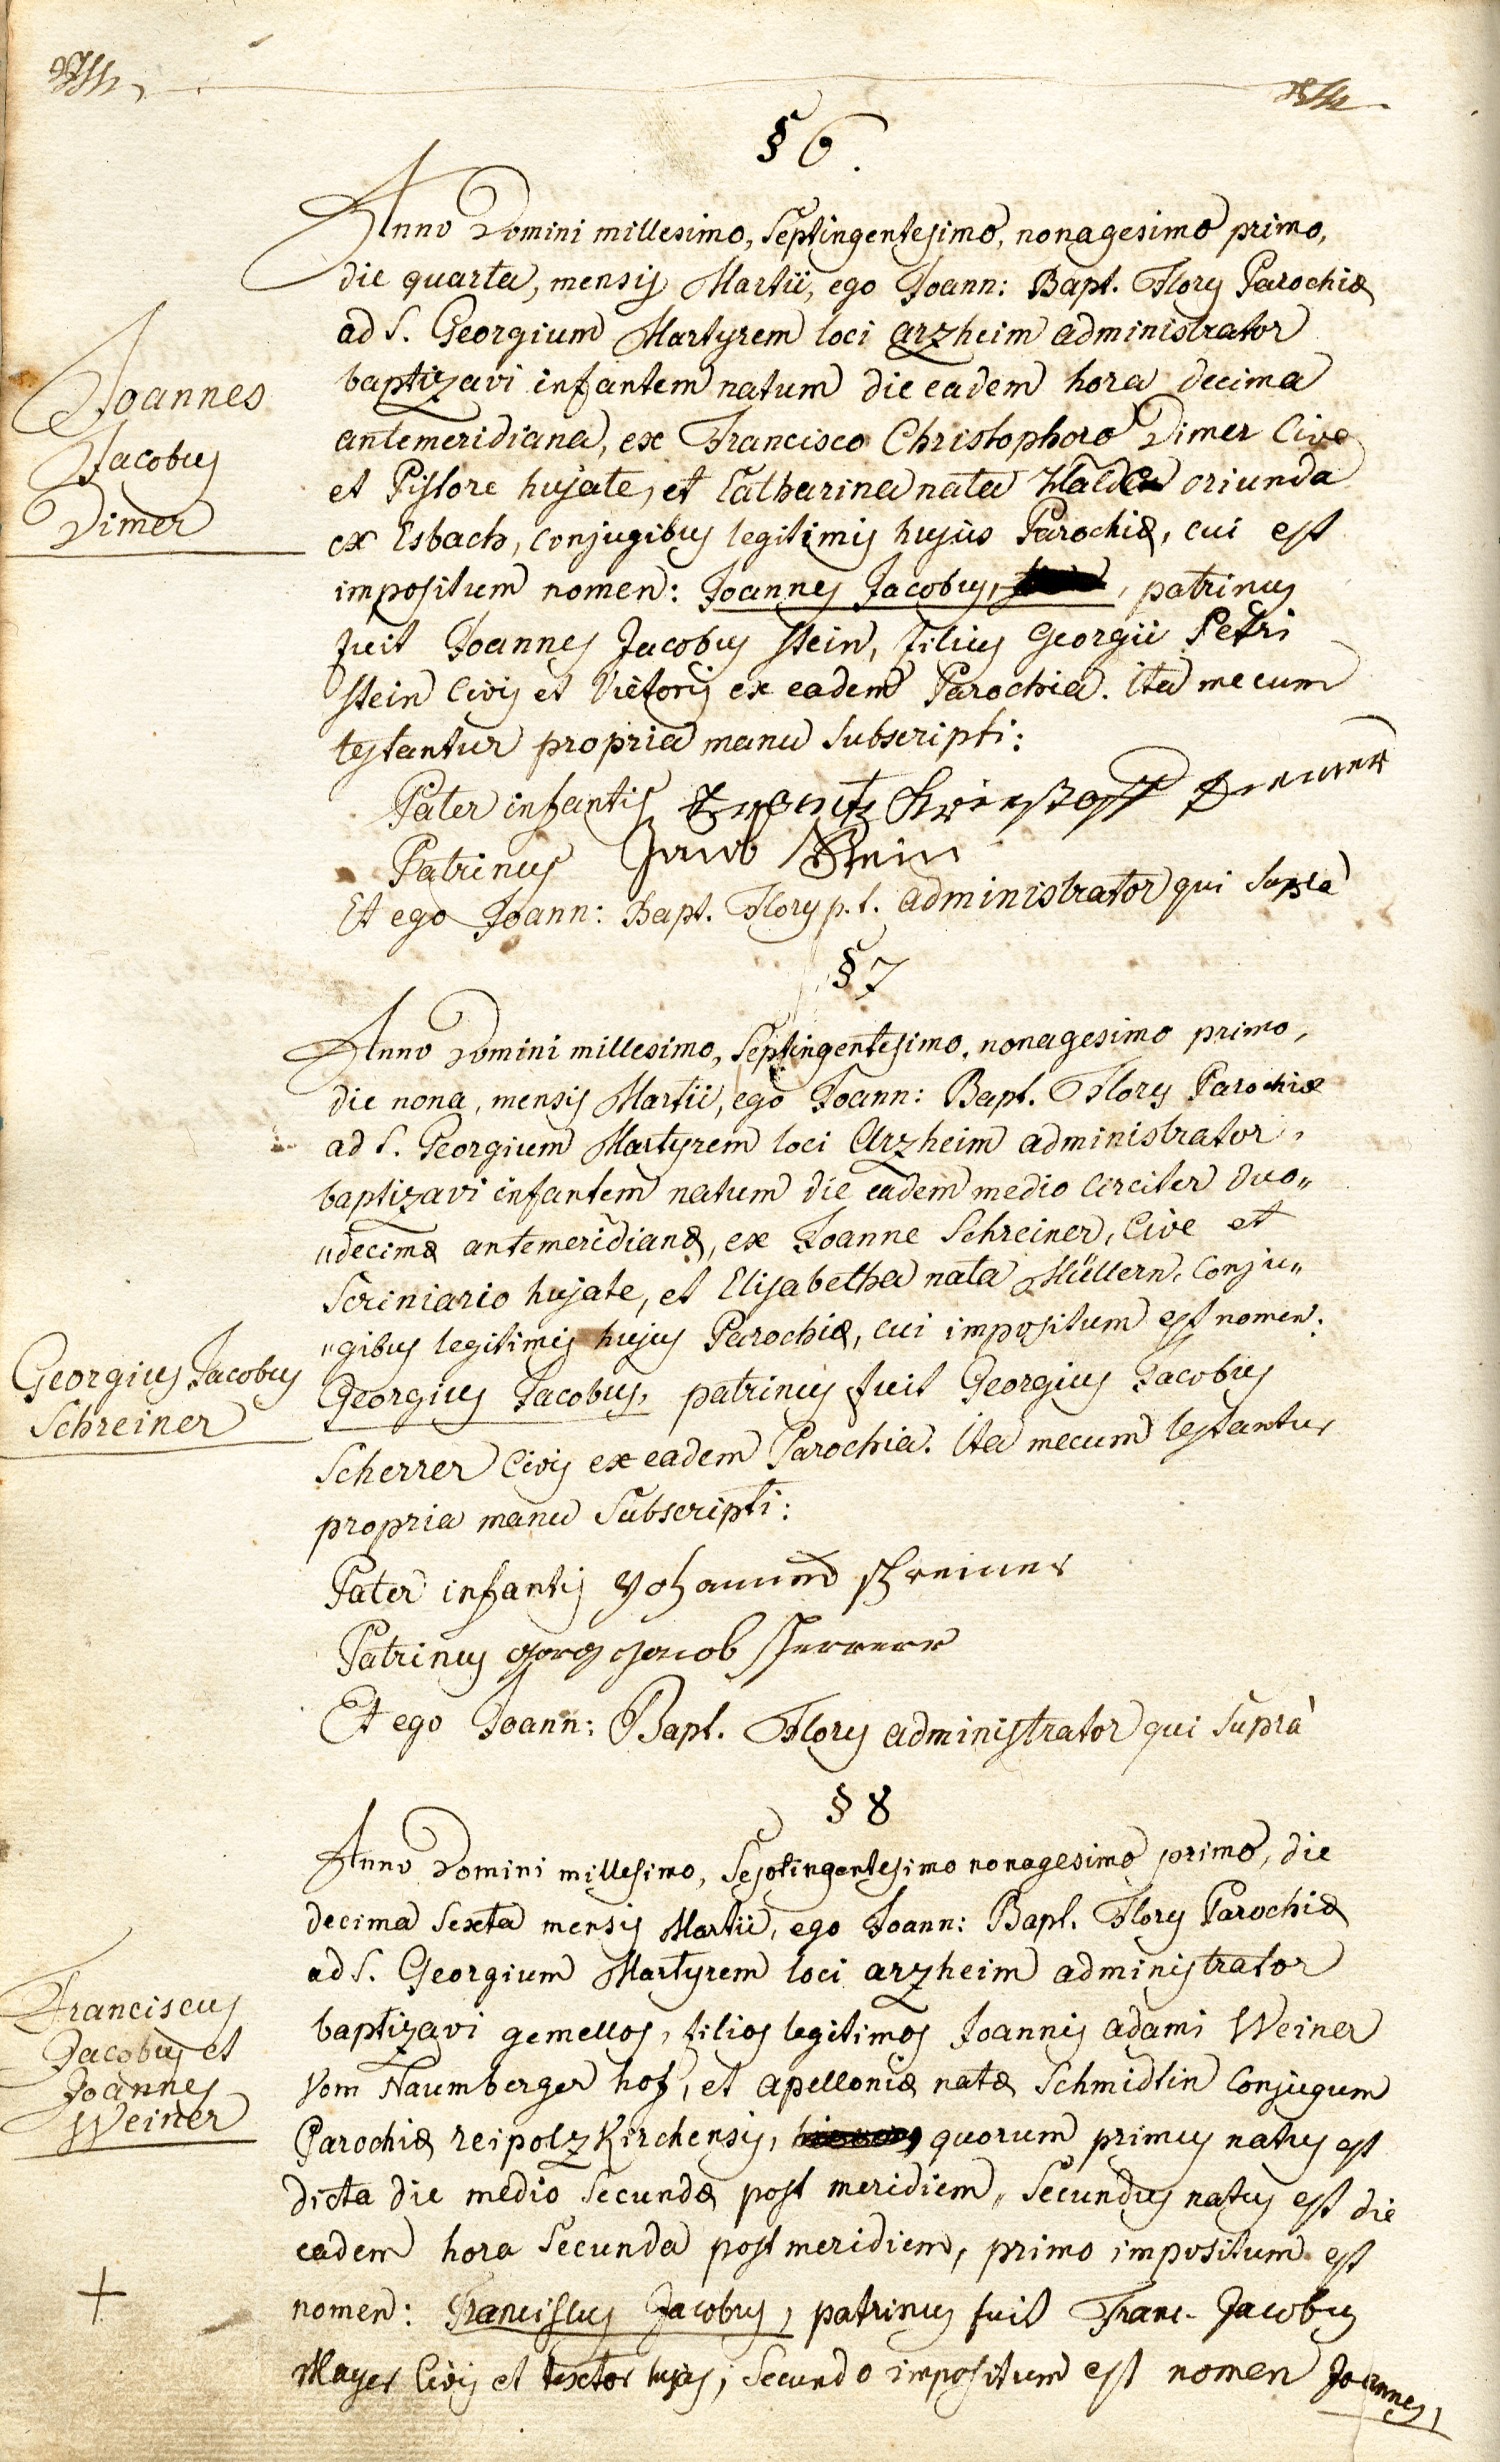 § 6.
Anno Domini millesimo, Septingentesimo, nonagesimo primo,
die quarta, mensis Martii, ego Joann: Bapt. Flory Parochiæ
ad S. Georgium Martyrem loci arzheim administrator
baptizavi infantem natum die eadem hora decima
antemeridiana, ex Francisco Christophoro Dimer Cive
et Pistore hujate, et Catharina nata oriunda
ex Esbach, Conjugibus legitimis hujus Parochiæ, cui est
impositum nomen: Joannes Jacobus, , patrinus
fuit Joannes Jacobus Stein, filius Georgii Petri
Stein Civis et Viētoris ex eadem Parochia. Ita mecum
testantur propria manu Subscripti:
Joannes
Jacobus
Dimer
Pater infantis Frantz Christoff Diemer
Patrinus Jacob Stein
Et ego Joann: Bapt. Flory p.t. administrator qui Suprà
§ 7
Anno Domini millesimo, Septingentesimo, nonagesimo primo,
die nona, mensis Martii, ego Joann: Bapt. Flory Parochiæ
ad S. Georgium Martyrem loci Arzheim administrator,
baptizavi infantem natum die eadem medio circiter duo„
„decimæ antemeridianæ, ex Joanne Schreiner, Cive et
Scriniario hujate, et Elisabetha nata Müllern, Conju„
„gibus legitimis hujus Parochiæ, cui impositum est nomen:
Georgius Jacobus, patrinus fuit Georgius Jacobus
Scherrer Civis ex eadem Parochia. Ita mecum testantur
propria manu Subscripti:
Georgius Jacobus
Schreiner
Pater infantis Johannes Schreiner
Patrinus Georg Jacob Scherrer
Et ego Joann: Bapt. Flory administrator qui Suprà
§ 8
Anno Domini millesimo, Septingentesimo nonagesimo primo, die
decima Sexta mensis Martii, ego Joann: Bapt. Flory Parochiæ
ad S. Georgium Martyrem loci arzheim administrator
baptizavi gemellos, filios legitimos Joannis adami Weiner
Vom Naumberger hof, et apelloniæ natæ Schmidtin Conjugum
Parochiæ reipolzkirchensis, quorum primus natus est
dicta die medio Secundæ post meridiem, Secundus natus est die
eadem hora Secunda post meridiem, primo impositum est
nomen: Franciscus Jacobus, patrinus fuit Franc. Jacobus
Mayer Civis et textor hujus, Secundo impositum est nomen Joannes,
Franciscus
Jacobus et
Joannes
Weiner
+